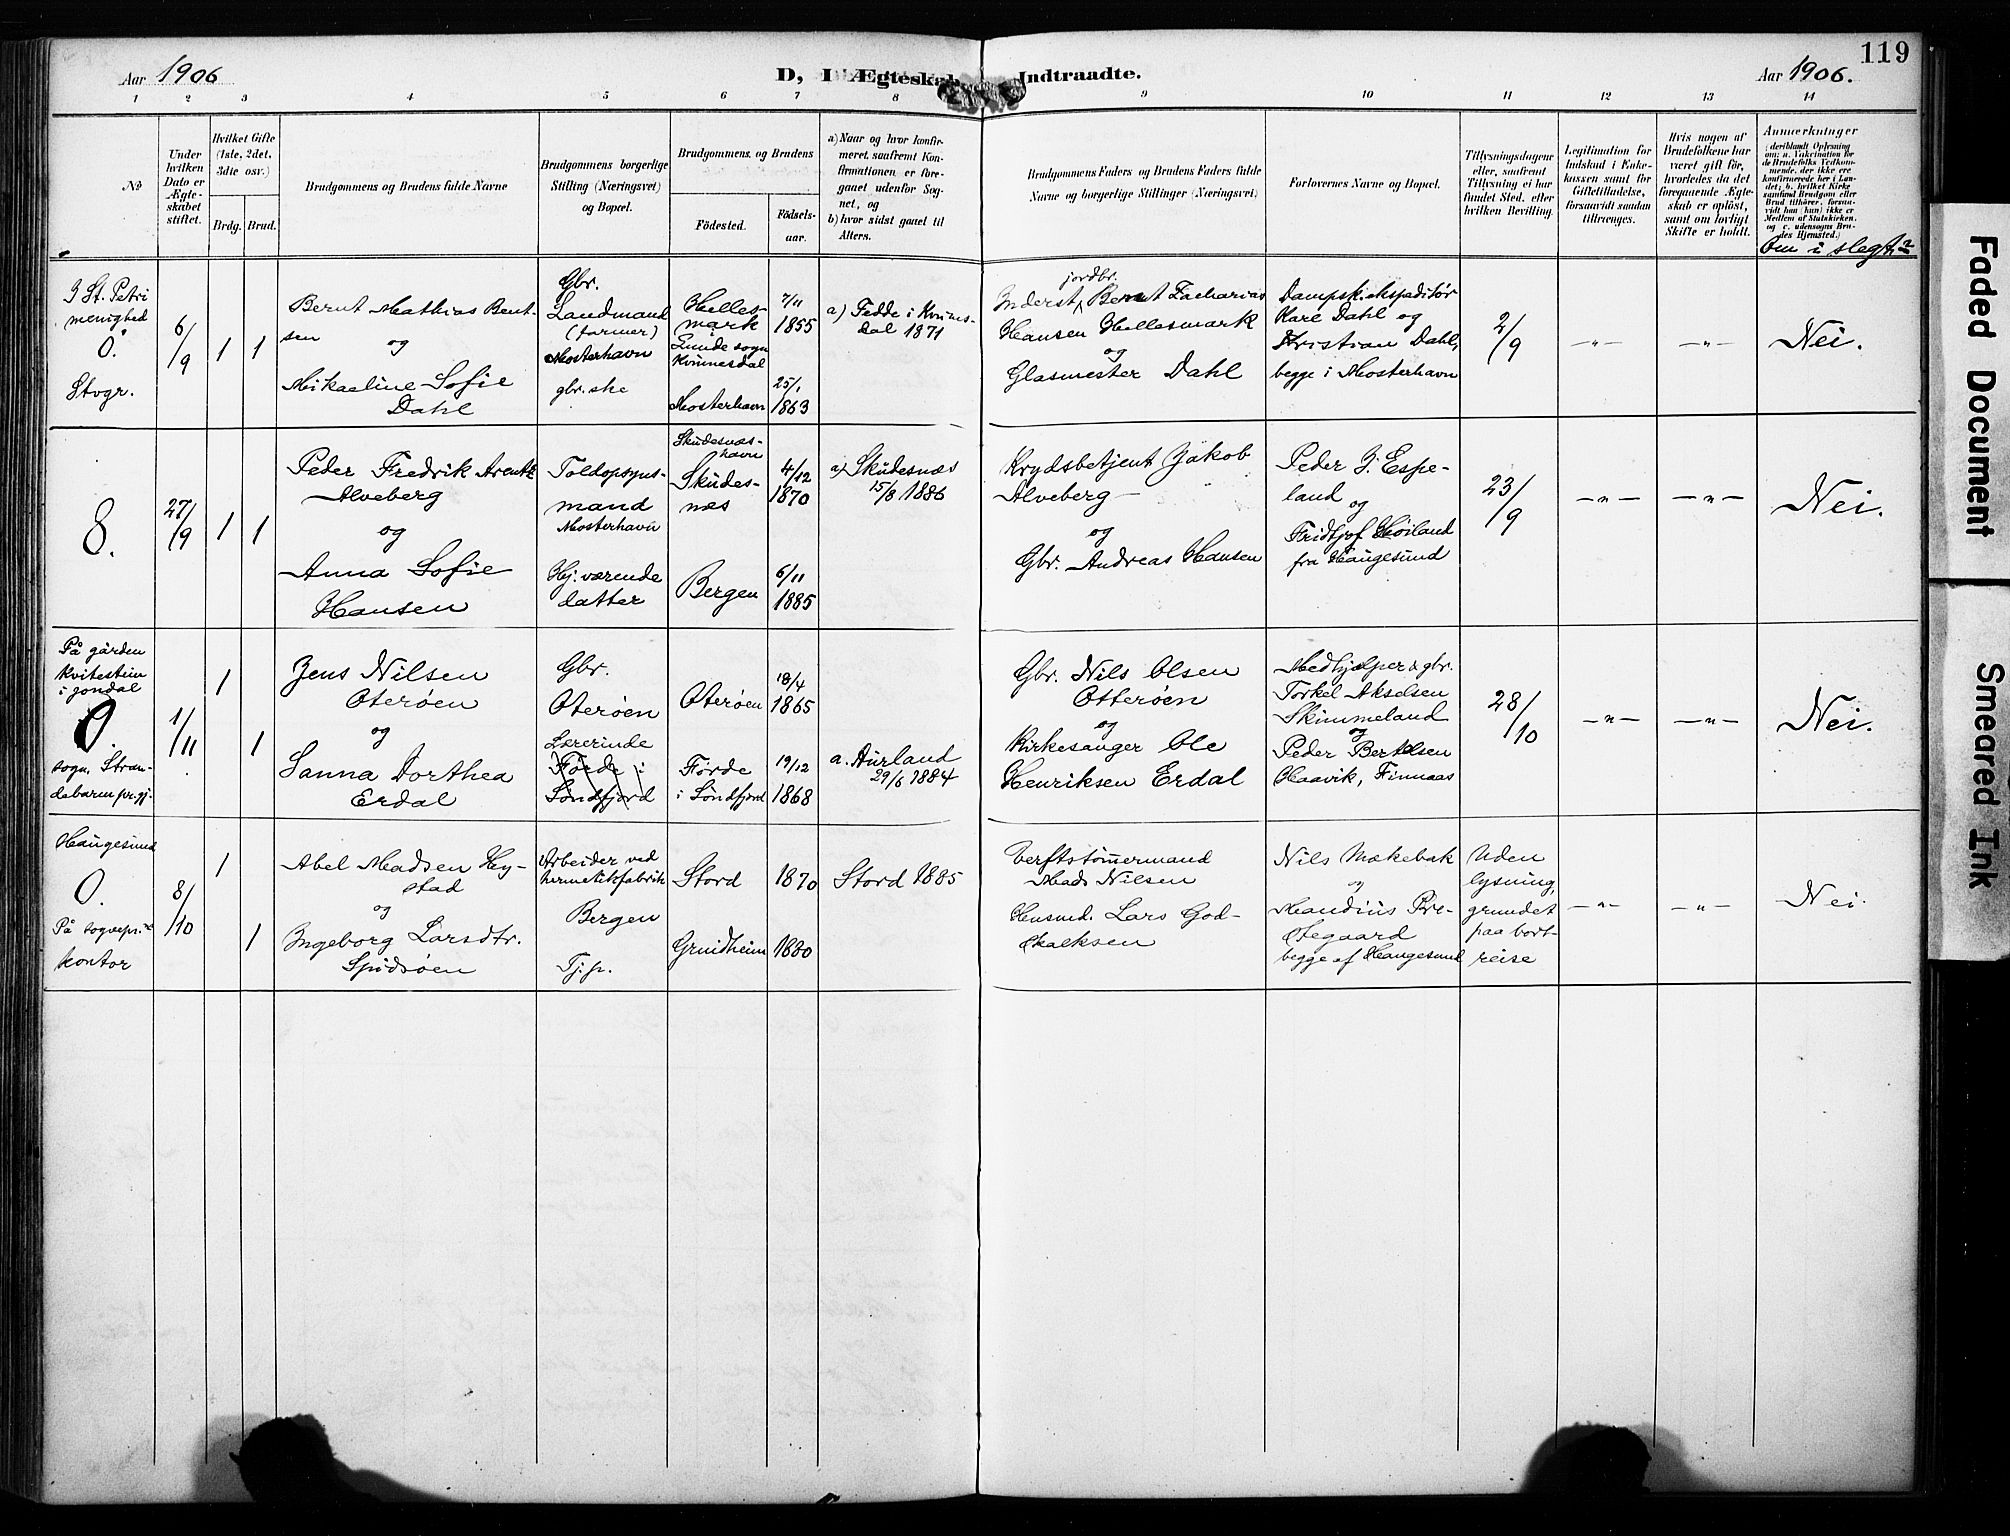 119
Aar 1906
D, I Ægteskab Indtraadte.
Aar 1906.
1 2 3 4 5 6 7 8 9 10 11 12 13 14
No
Under hvilken Dato er Ægte-skabet stiftet.
Hvilket Gifte (1ste, 2det, 3die osv.)
Brdg. Brud.
Brudgommens og Brudens fulde Navne
Brudgommens borgerlige Stilling (Næringsvei) og Bopæl.
Brudgommens og Brudens
Fødested.
Fødsels-aar.
a) Naar og hvor konfir-meret, saafremt Kon-firmationen er fore-gaaet udenfor Sog-net, og
b) hvor sidst gaaet til Alters.
Brudgommens Faders og Brudens Faders fulde Navne og borgerlige Stillinger (Næringsvei)
Forlovernes Navne og Bopæl.
Tillysningsdagene eller, saafremt Tillysning ei har fundet Sted, efter hvilken Bevilling.
Legitimation for Indskud i Enke-kassen samt for Giftetilladelse, forsaavidt saadan tiltrænges.
Hvis nogen af Brudefolkene har været gift før, hvorledes da det foregaaende Ægte-skab er opløst, samt om lovligt Skifte er holdt.
Anmærkninger
(deriblandt Oplysning om: a. Vakcination for de Brudefolks Vedkom-mende, der ikke ere konfirmerede her i Lan-det; b. hvilket Kirke-samfund Brudgom eller Brud tilhører, forsaa-vidt han (hun) ikke er Medlem af Statskirken, og c. udensogns Bru-des Hjemsted.)
Om i slegt?
I St. Petri
menighed
0.
Stvgr.
6/9
1 1
Bernt Mathias Bent-
sen
og
Mikaeline Sofie
Dahl
Gbr.
Landmand
(farmer)
Mosterhavn
gbr. ske
Helles-
mark
Lunde sogn
Kvinnesdal
Mosterhavn
7/11
1855
25/1
1863
a) Fedde i Kvinnes-
dal 1871
jordbr.
Inderst, Bernt Zacharias
Hansen Hellesmark
og
Glasmester Dahl
Dampsk.ekspeditør
Kare Dahl og
Kristian Dahl,
begge i Mosterhavn
2/9
—"—
—"—
Nei.
8.
27/9
1 1
Peder Fredrik Arentz
Alveberg
og
Anna Sofie
Hansen
Toldopsyns-
mand
Mosterhavn
Hj. værende
datter
Skudesnæs-
havn
Skudes-
næs
Bergen
4/12
1870
6/11
1885
a) Skudesnæs
15/8 1886
Krydsbetjent Jakob
Alveberg —
og
Gbr. Andreas Hansen
Peder J. Espe-
land
og
Fridtjof Høiland
fra Haugesund
23/9
—"—
—"—
Nei.
På gården
Kvitestein
i Jondal
0.
sogn, Stran-
debarm pr.gj.
1/11
1
1
Jens Nilsen
Oterøen
og
Sanna Dorthea
Erdal
Gbr.
Oterøen
Lærerinde
Førde i
Søndfjord
Oterøen
Førde
i Søndfjord
18/4
1865
19/12
1868
a. Aurland
29/6 1884
Gbr. Nils Olsen
Otterøen
og
Kirkesanger Ole
Henriksen Erdal
Medhjælper & gbr.
Torkel Akselsen
Skimmeland
og
Peder Bertelsen
Haavik, Finnaas
28/10
—"—
—"—
Nei.
Haugesund
0.
På sognepr.s
kontor
8/10
1
1
Abel Madsen Hy-
stad
og
Ingeborg Larsdtr.
Spidsøen
Arbeider ved
hermetikfabrik
Bergen
Tj.p.
Stord
Grindheim
1870
1880
Stord 1885
Verftstømmermand
Mads Nilsen
Husmd. Lars God-
skalksen
Nils Mækebak
og
Mandius Pre-
stegaard
begge af Haugesund
Uden
lysning,
grundet
paa bort-
reise
—"—
—"—
Nei.
Faded Document
Smeared Ink